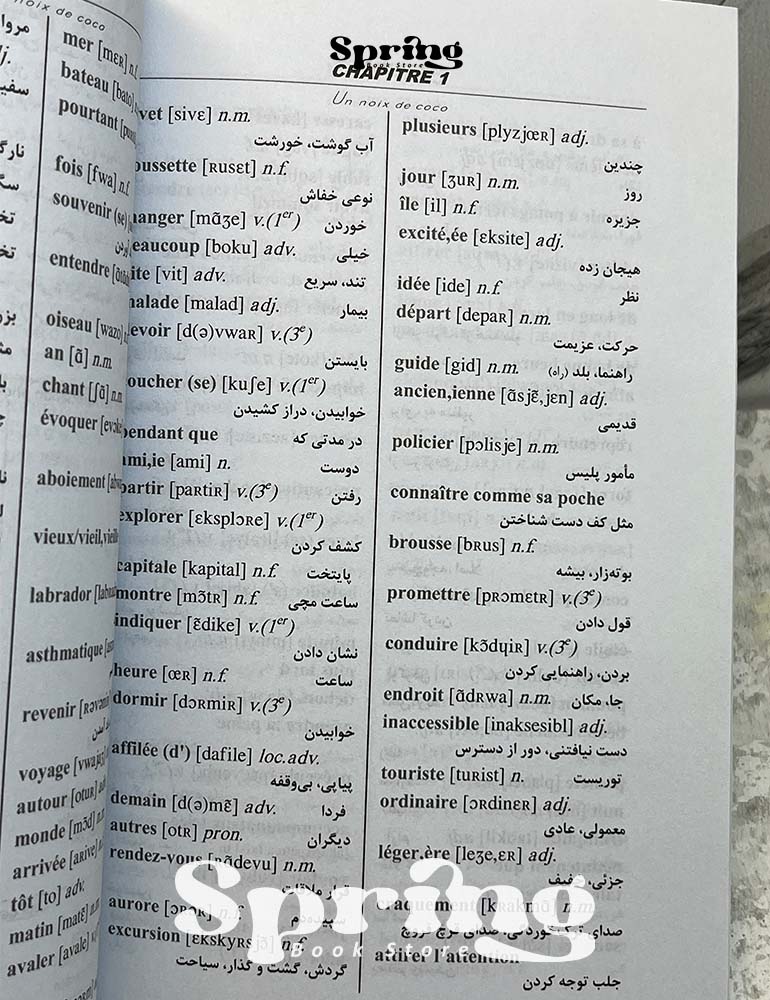 Un noix de coco
mer [mɛʀ] n.f.
bateau [bato]
pourtant
fois [fwa] n.f.
souvenir (se)
entendre
oiseau [wazo]
an [ɑ̃] n.m.
chant [ʃɑ̃] n.m.
évoquer
aboiement
vieux/vieil,vieille
labrador
asthmatique
revenir
voyage
autour
monde [mɔ̃d]
arrivée [aʀive]
tôt [to] adv.
matin [matɛ̃]
avaler [avale]
Spring
Book Store
CHAPITRE 1
Un noix de coco
vet [sivɛ] n.m.
آب گوشت، خورشت
oussette [ʀusɛt] n.f.
نوعی خفاش
anger [mɑ̃ʒe] v.(1er) خوردن
eaucoup [boku] adv. خیلی
ite [vit] adv. تند، سریع
alade [malad] adj. بیمار
evoir [d(ə)vwaʀ] v.(3e)
بایستن
oucher (se) [kuʃe] v.(1er)
خوابیدن، دراز کشیدن
pendant que در مدتی که
ami,ie [ami] n. دوست
partir [paʀtiʀ] v.(3e) رفتن
explorer [ɛksplɔʀe] v.(1er)
کشف کردن
capitale [kapital] n.f. پایتخت
montre [mɔ̃tʀ] n.f. ساعت مچی
indiquer [ɛ̃dike] v.(1er)
نشان دادن
heure [œʀ] n.f. ساعت
dormir [dɔʀmiʀ] v.(3e)
خوابیدن
affilée (d') [dafile] loc.adv.
پیاپی، بی‌وقفه
demain [d(ə)mɛ̃] adv. فردا
autres [otʀ] pron. دیگران
rendez-vous [ʀɑ̃devu] n.m.
قرار ملاقات
aurore [ɔʀɔʀ] n.f. سپیده‌دم
excursion [ɛkskyʀsjɔ̃] n.f.
گردش، گشت و گذار، سیاحت
plusieurs [plyzjœʀ] adj.
چندین
jour [ʒuʀ] n.m. روز
île [il] n.f. جزیره
excité,ée [ɛksite] adj.
هیجان زده
idée [ide] n.f. نظر
départ [depaʀ] n.m.
حرکت، عزیمت
guide [gid] n.m. راهنما، بلد (راه)
ancien,ienne [ɑ̃sjɛ̃,jɛn] adj.
قدیمی
policier [pɔlisje] n.m.
مأمور پلیس
connaître comme sa poche
مثل کف دست شناختن
brousse [bʀus] n.f.
بوته‌زار، بیشه
promettre [pʀɔmɛtʀ] v.(3e)
قول دادن
conduire [kɔ̃dɥiʀ] v.(3e)
بردن، راهنمایی کردن
endroit [ɑ̃dʀwa] n.m. جا، مکان
inaccessible [inaksesibl] adj.
دست نیافتنی، دور از دسترس
touriste [tuʀist] n. توریست
ordinaire [ɔʀdinɛʀ] adj.
معمولی، عادی
léger,ère [leʒe,ɛʀ] adj.
جزئی، خفیف
craquement [kʀakmɑ̃] n.m.
صدای ترک‌خوردگی، صدای ترق تروق
attirer l'attention
جلب توجه کردن
Spring
Book Store